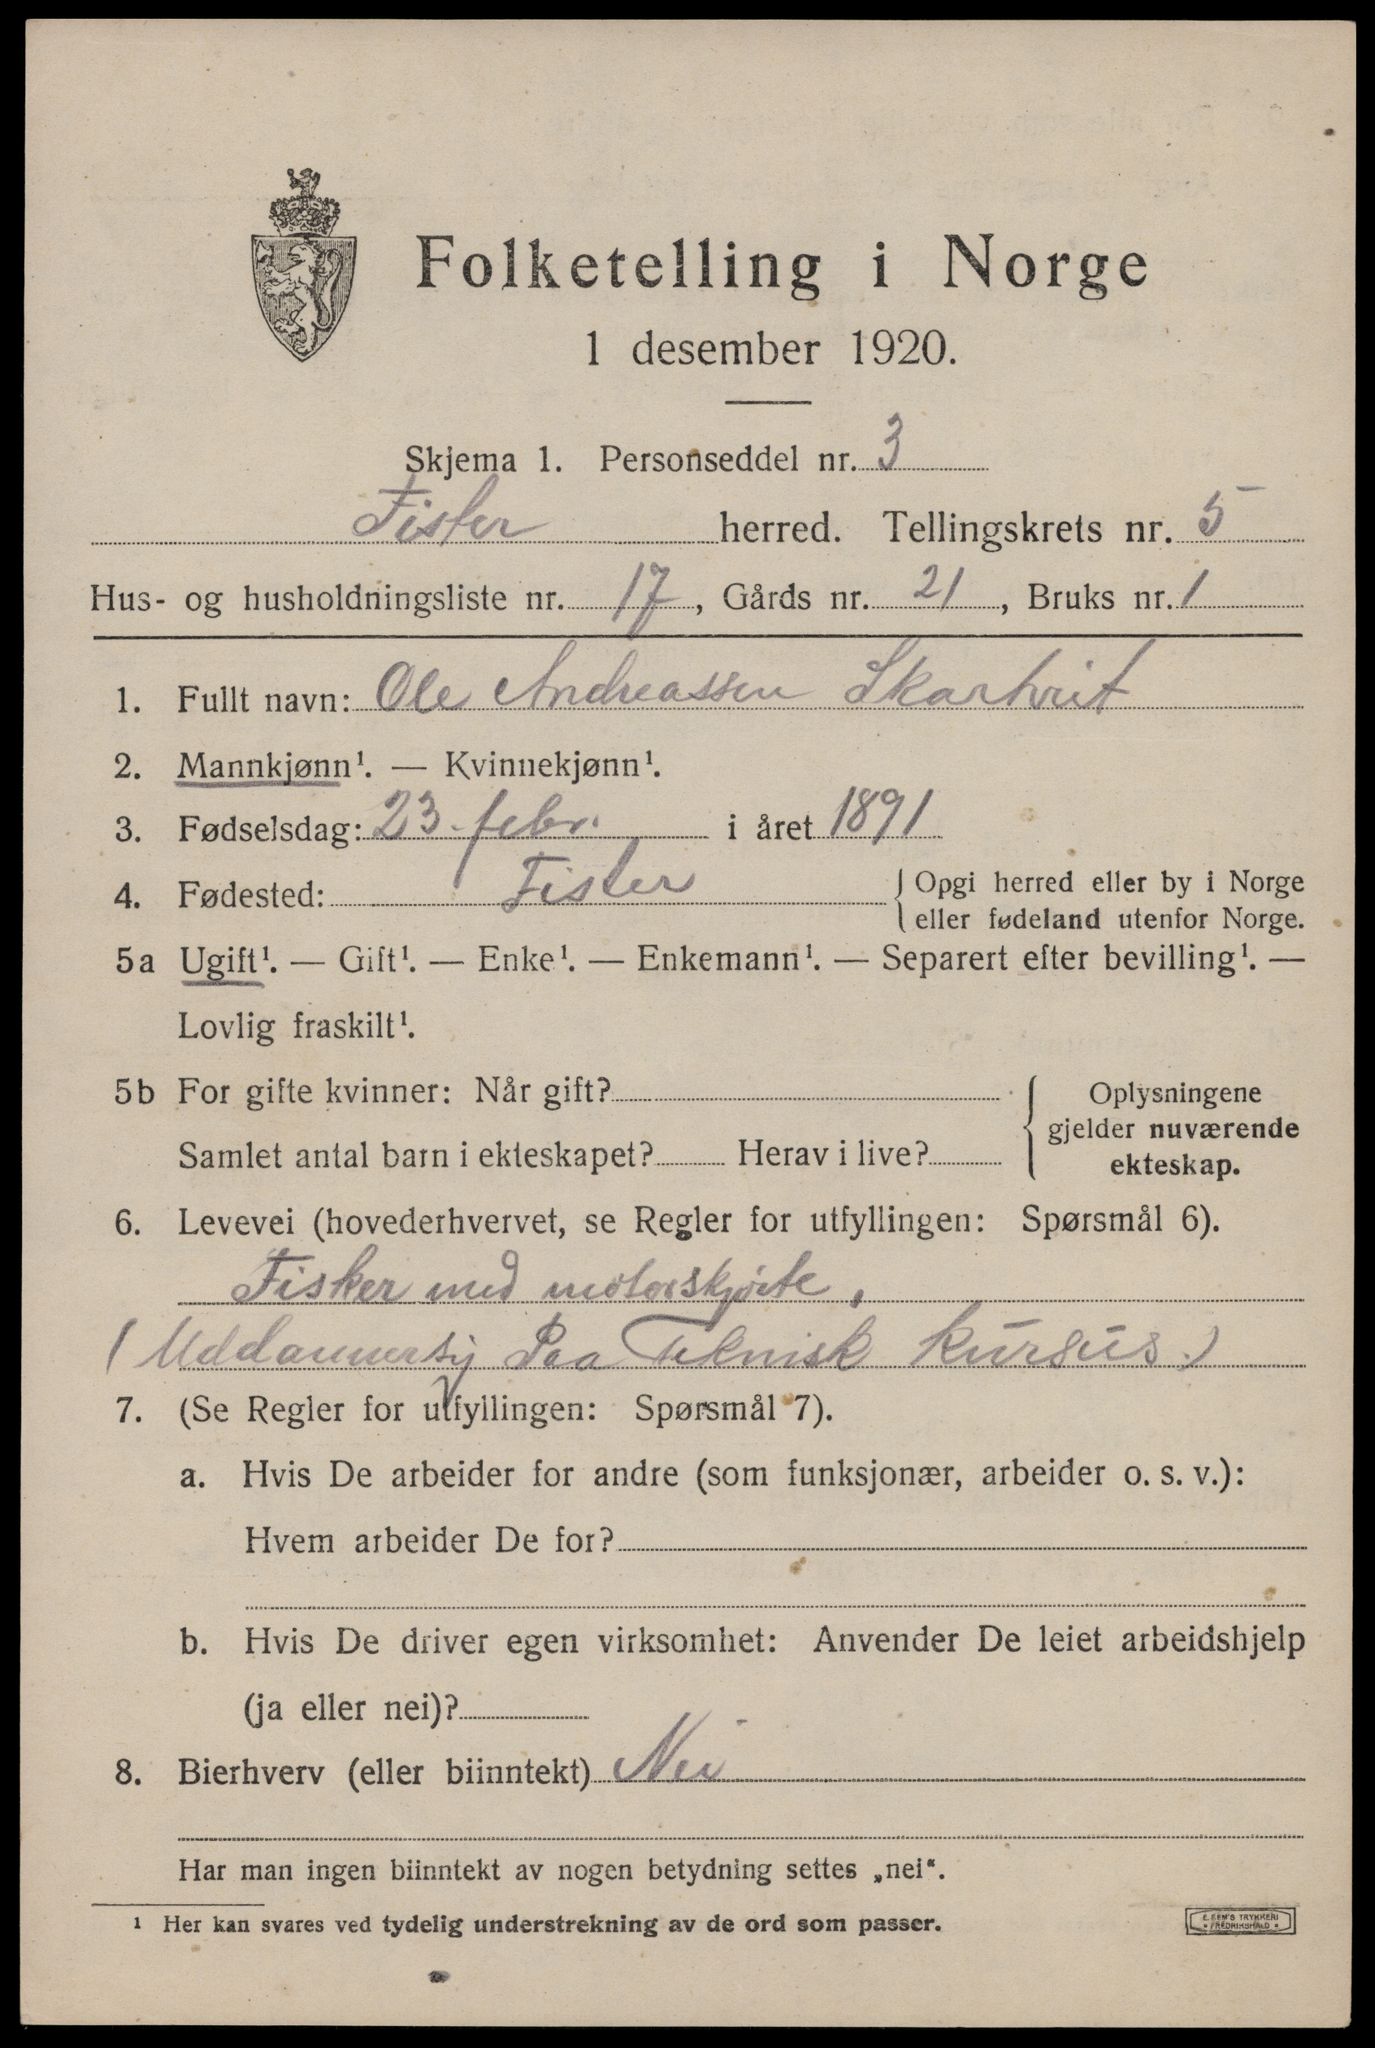 Folketelling i Norge
1 desember 1920.
Skjema 1. Personseddel nr. 3
Fister herred. Tellingskrets nr. 5
Hus- og husholdningsliste nr. 17, Gårds nr. 21, Bruks nr. 1
1. Fullt navn: Ole Andreassen
2. Mannkjønn¹. — Kvinnekjønn¹.
3. Fødselsdag: 23 febr. i året 1891
4. Fødested: Fister { Opgi herred eller by i Norge
eller fødeland utenfor Norge.
5a Ugift¹. — Gift¹. — Enke¹. — Enkemann¹. — Separert efter bevilling¹. —
Lovlig fraskilt¹.
5b For gifte kvinner: Når gift? { Oplysningene
gjelder nuværende
Samlet antal barn i ekteskapet? Herav i live?
ekteskap.
6. Levevei (hovederhvervet, se Regler for utfyllingen: Spørsmål 6).
Fisker med motorskjøite,
(Uddannersig Paa Teknisk Kursus.)
7. (Se Regler for utfyllingen: Spørsmål 7).
a. Hvis De arbeider for andre (som funksjonær, arbeider o. s. v.):
Hvem arbeider De for?
b. Hvis De driver egen virksomhet: Anvender De leiet arbeidshjelp
(ja eller nei)?
8. Bierhverv (eller biinntekt) Nei
Har man ingen biinntekt av nogen betydning settes „nei“.
¹ Her kan svares ved tydelig understrekning av de ord som passer.
E. SEM'S TRYKKERI
• FREDRIKSHALD •